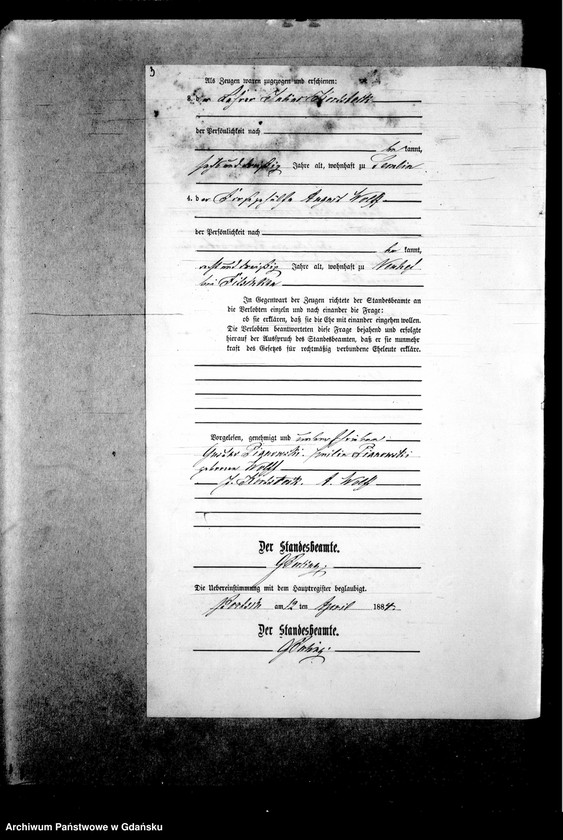 Als Zeugen waren zugezogen und erschienen:
3. der Lehrer
der Persönlichkeit nach
be kannt,
sechs und dreißig Jahre alt, wohnhaft zu
4. der August Wolff
der Persönlichkeit nach
be kannt,
acht und dreißig Jahre alt, wohnhaft zu
bei
In Gegenwart der Zeugen richtete der Standesbeamte an
die Verlobten einzeln und nach einander die Frage:
ob sie erklären, daß sie die Ehe mit einander eingehen wollen.
Die Verlobten beantworteten diese Frage bejahend und erfolgte
hierauf der Ausspruch des Standesbeamten, daß er sie nunmehr
kraft des Gesetzes für rechtmäßig verbundene Eheleute erkläre.
Vorgelesen, genehmigt und unterschrieben
Gustav Pianowski. Emilie Pianowski
geborene Wolff
J. A. Wolff
Der Standesbeamte.
Die Uebereinstimmung mit dem Hauptregister beglaubigt.
am 12 ten April 1884
Der Standesbeamte.
Archiwum Państwowe w Gdańsku